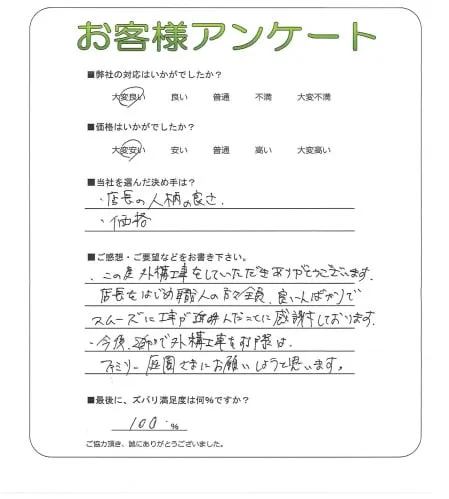 お客様アンケート
■弊社の対応はいかがでしたか？
大変良い 良い 普通 不満 大変不満
■価格はいかがでしたか？
大変安い 安い 普通 高い 大変高い
■当社を選んだ決め手は？
・店長の人柄の良さ．
・価格
■ご感想・ご要望などをお書き下さい。
・この度外構工事をしていただきありがとうございます．
店長をはじめ職人の方々全員、良い人ばかりで
スムーズに工事が進んだことに感謝しております．
・今後、で外構工事をする際は、
ファミリー庭園さまにお願いしようと思います。
■最後に、ズバリ満足度は何%ですか？
100 %
ご協力頂き、誠にありがとうございました。